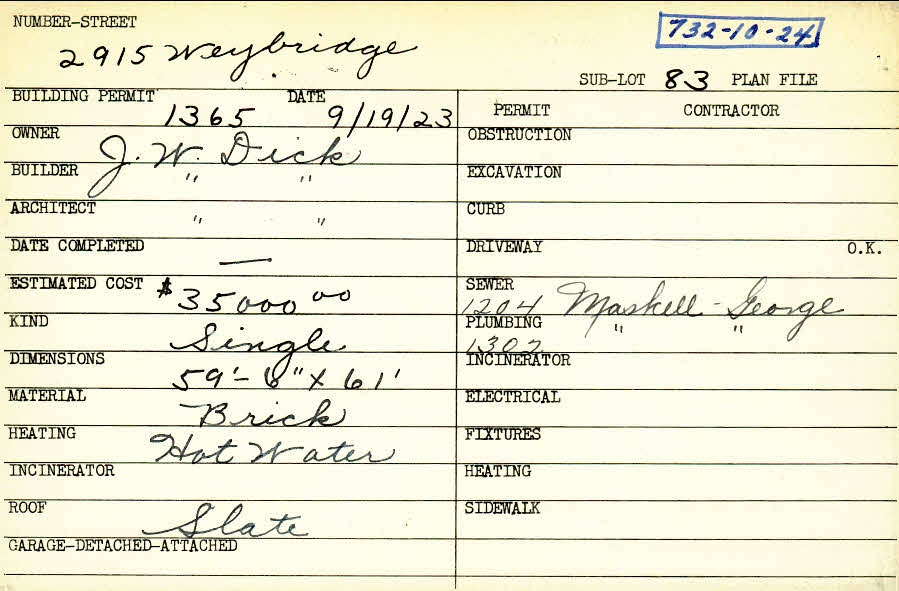 NUMBER-STREET
732-10-24
2915 Weybridge
SUB-LOT 83 PLAN FILE
BUILDING PERMIT 1365 DATE 9/19/23
OWNER J. W. Dick
BUILDER " "
ARCHITECT " "
DATE COMPLETED —
ESTIMATED COST $35000 00
KIND Single
DIMENSIONS 59'-6" X 61'
MATERIAL Brick
HEATING Hot Water
INCINERATOR
ROOF Slate
GARAGE-DETACHED-ATTACHED
PERMIT CONTRACTOR
OBSTRUCTION
EXCAVATION
CURB
DRIVEWAY O.K.
SEWER
1204 Maskell - George
PLUMBING " "
1302
INCINERATOR
ELECTRICAL
FIXTURES
HEATING
SIDEWALK